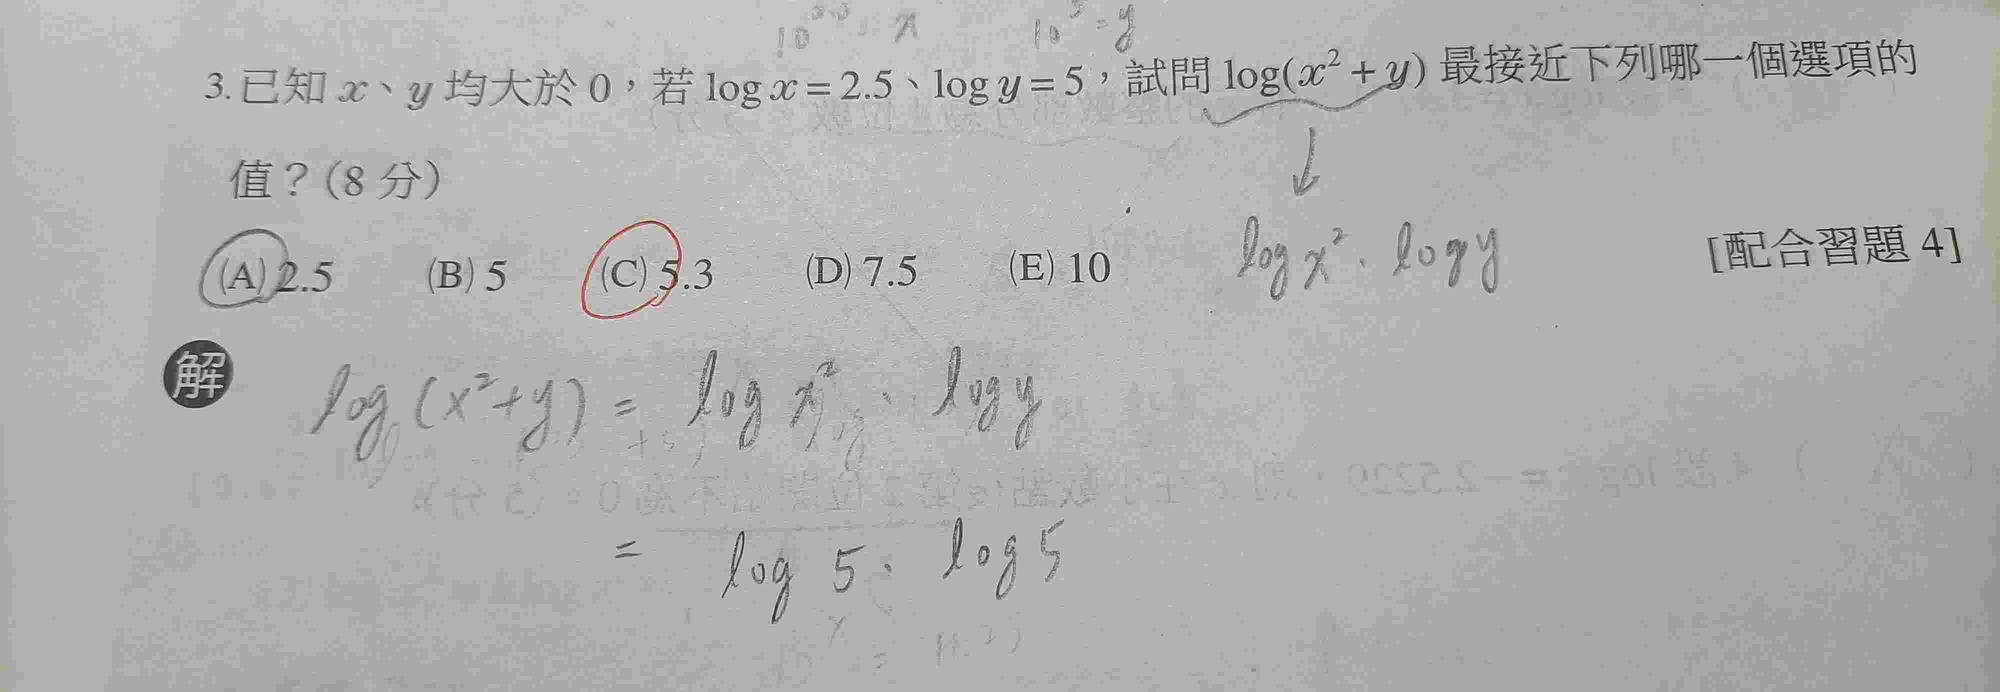 10^2.5 = x 10^5 = y
3.已知 x、y 均大於 0，若 log x = 2.5、log y = 5，試問 log(x² + y) 最接近下列哪一個選項的
值？(8 分)
↓
log x² · log y
(A) 2.5 (B) 5 (C) 5.3 (D) 7.5 (E) 10 [配合習題 4]
解
log (x²+y) = log x² · log y
= log 5 · log 5